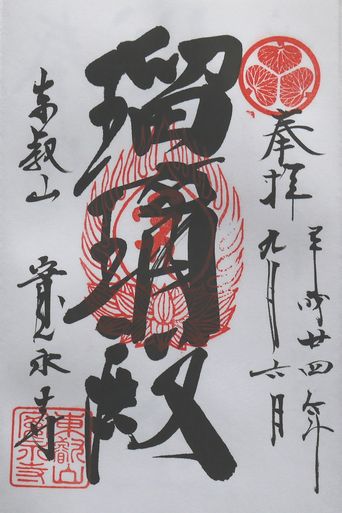 奉拝
平成廿四年
九月六日
瑠璃殿
東叡山
寛永寺
東叡山
寛永寺